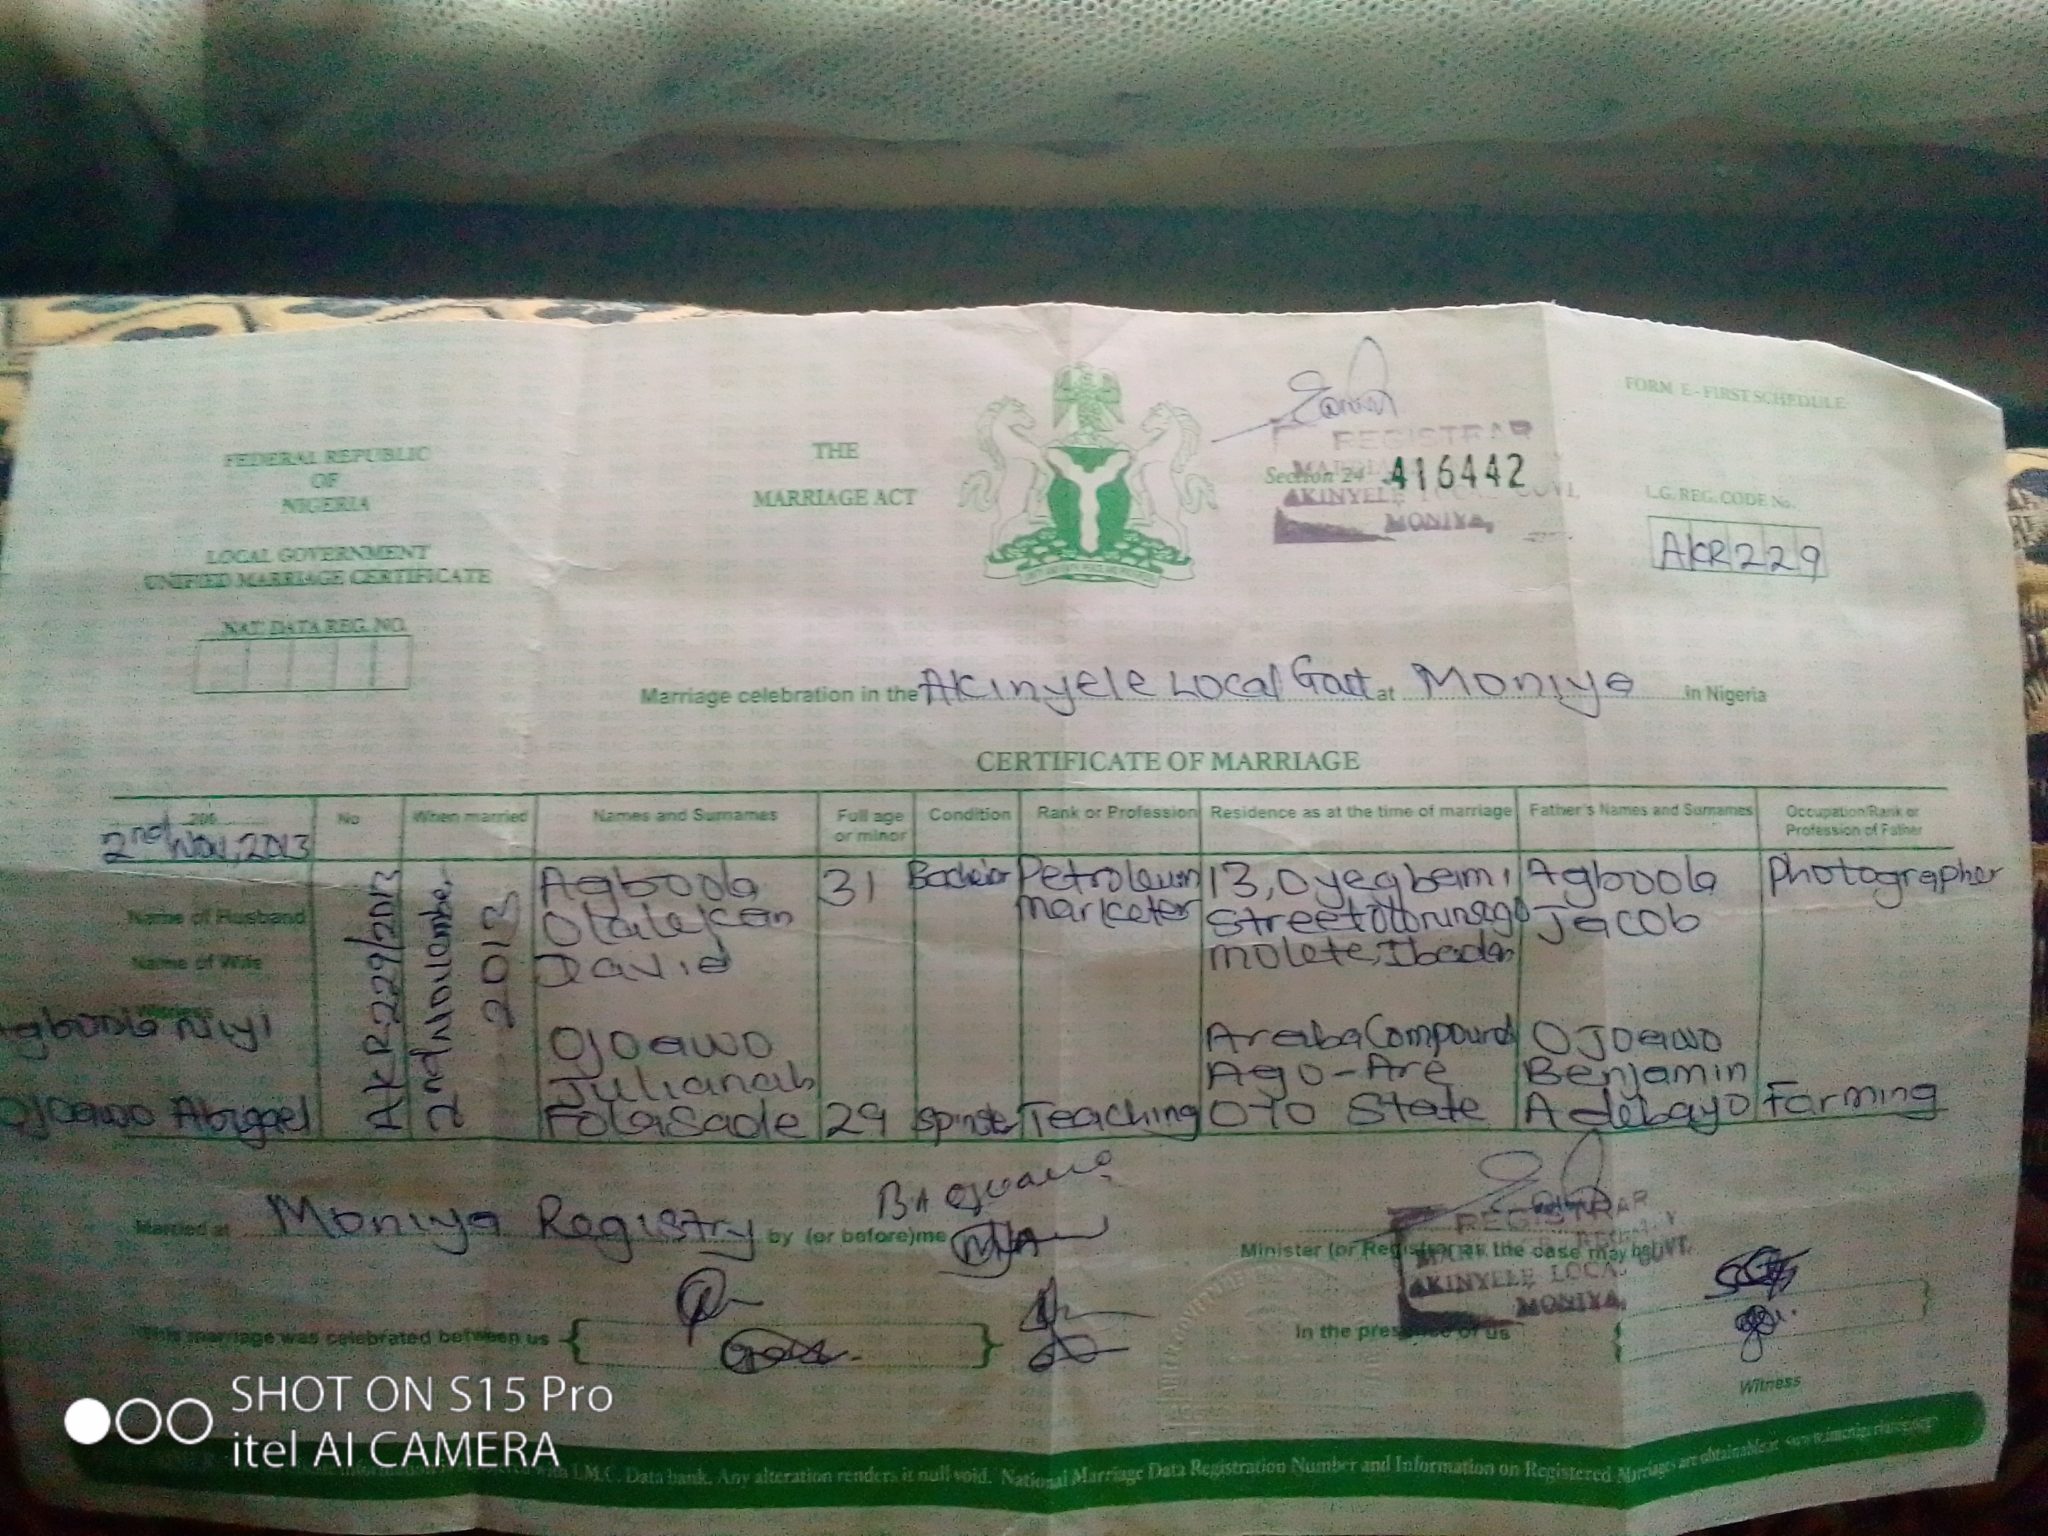 FORM E - FIRST SCHEDULE
FEDERAL REPUBLIC
OF
NIGERIA
LOCAL GOVERNMENT
UNIFIED MARRIAGE CERTIFICATE
NAT. DATA REG. NO.
THE
MARRIAGE ACT
REGISTRAR
Section 24 416442
AKINYELE LOCAL GOVT,
MONIYA,
L.G. REG. CODE No.
AKR229
Marriage celebration in the Akinyele Local Govt at Moniya in Nigeria
CERTIFICATE OF MARRIAGE
200
2nd Nov, 2013
No
When married
Names and Surnames
Full age
or minor
Condition
Rank or Profession
Residence as at the time of marriage
Father's Names and Surnames
Occupation/Rank or
Profession of Father
Name of Husband
Name of Wife
Witness
Agboola Niyi
Ojoawo Abigael
AKR229/2013
2nd November
2013
Agboola
Olalekan
David
31
Bachelor
Petroleum
marketer
13, Oyegbemi
Street
molete, Ibadan
Agboola
Jacob
Photographer
Ojoawo
Julianah
Folasade
29
Spinster
Teaching
Araba Compound
Ago-Are
Oyo State
Ojoawo
Benjamin
Adebayo
Farming
Married at Moniya Registry by (or before) me
REGISTRAR
Minister (or Registrar as the case may be)
AKINYELE LOCAL GOVT.
MONIYA,
This marriage was celebrated between us
In the presence of us
Witness
I.M.C. Data bank. Any alteration renders it null void. National Marriage Data Registration Number and Information on Registered Marriages are obtainable at
SHOT ON S15 Pro
itel AI CAMERA